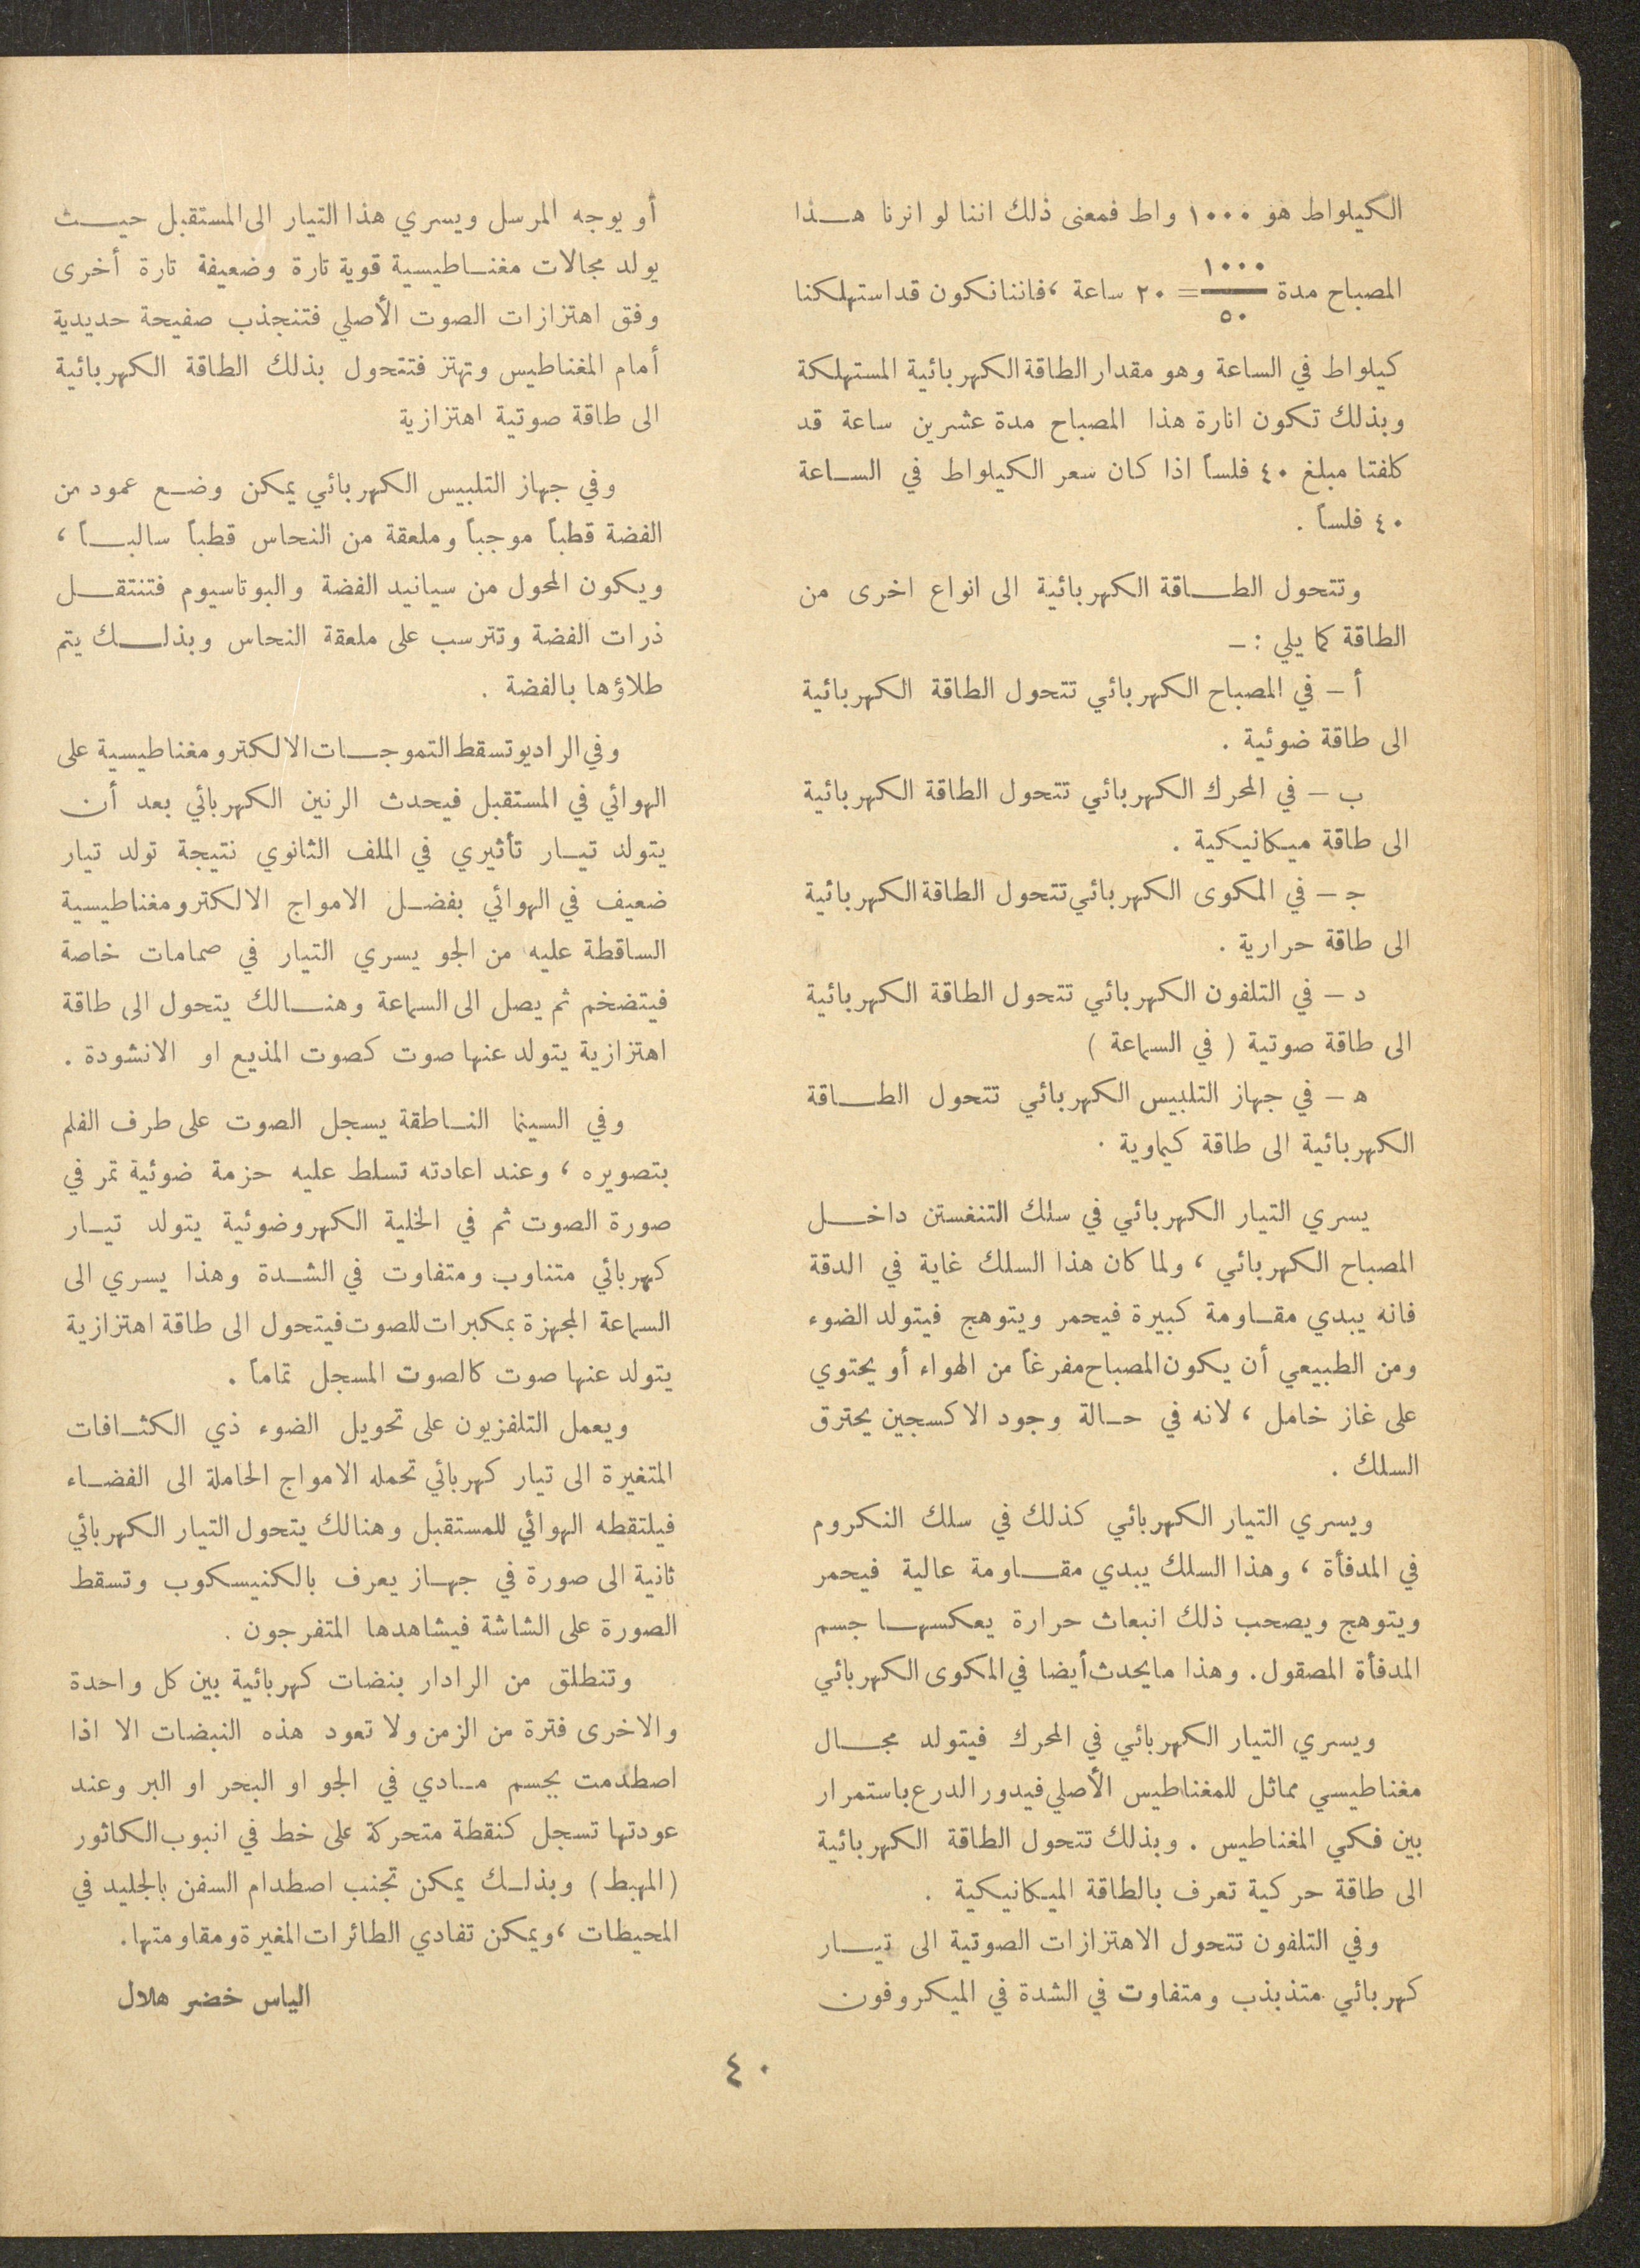 الكيلواط هو ١٠٠٠ واط فمعنى ذلك اننا لو انرنا هذا
المصباح مدة ١٠٠٠/٥٠ = ٢٠ ساعة ، فاننا نكون قد استهلكنا
كيلواط في الساعة وهو مقدار الطاقة الكهربائية المستهلكة
وبذلك تكون انارة هذا المصباح مدة عشرين ساعة قد
كلفتا مبلغ ٤٠ فلساً اذا كان سعر الكيلواط في الساعة
٤٠ فلساً .
وتتحول الطاقة الكهربائية الى انواع اخرى من
الطاقة كما يلي : –
أ – في المصباح الكهربائي تتحول الطاقة الكهربائية
الى طاقة ضوئية .
ب – في المحرك الكهربائي تتحول الطاقة الكهربائية
الى طاقة ميكانيكية .
ج – في المكوى الكهربائي تتحول الطاقة الكهربائية
الى طاقة حرارية .
د – في التلفون الكهربائي تتحول الطاقة الكهربائية
الى طاقة صوتية ( في السماعة )
ه – في جهاز التلبيس الكهربائي تتحول الطاقة
الكهربائية الى طاقة كيماوية .
يسري التيار الكهربائي في سلك التنغستن داخل
المصباح الكهربائي ، ولما كان هذا السلك غاية في الدقة
فانه يبدي مقاومة كبيرة فيحمر ويتوهج فيتولد الضوء
ومن الطبيعي أن يكون المصباح مفرغاً من الهواء أو يحتوي
على غاز خامل ، لانه في حالة وجود الاكسجين يحترق
السلك .
ويسري التيار الكهربائي كذلك في سلك النكروم
في المدفأة ، وهذا السلك يبدي مقاومة عالية فيحمر
ويتوهج ويصحب ذلك انبعاث حرارة يعكسها جسم
المدفأة المصقول . وهذا ما يحدث أيضا في المكوى الكهربائي
ويسري التيار الكهربائي في المحرك فيتولد مجال
مغناطيسي مماثل للمغناطيس الأصلي فيدور الدرع باستمرار
بين فكي المغناطيس . وبذلك تتحول الطاقة الكهربائية
الى طاقة حركية تعرف بالطاقة الميكانيكية .
وفي التلفون تتحول الاهتزازات الصوتية الى تيار
كهربائي متذبذب ومتفاوت في الشدة في الميكروفون
أو يوجه المرسل ويسري هذا التيار الى المستقبل حيث
يولد مجالات مغناطيسية قوية تارة وضعيفة تارة أخرى
وفق اهتزازات الصوت الأصلي فتنجذب صفيحة حديدية
أمام المغناطيس وتهتز فتتحول بذلك الطاقة الكهربائية
الى طاقة صوتية اهتزازية
وفي جهاز التلبيس الكهربائي يمكن وضع عمود من
الفضة قطباً موجباً وملعقة من النحاس قطباً سالباً ،
ويكون المحول من سيانيد الفضة والبوتاسيوم فتنتقل
ذرات الفضة وتترسب على ملعقة النحاس وبذلك يتم
طلاؤها بالفضة .
وفي الراديو تسقط التموجات الالكترومغناطيسية على
الهوائي في المستقبل فيحدث الرنين الكهربائي بعد أن
يتولد تيار تأثيري في الملف الثانوي نتيجة تولد تيار
ضعيف في الهوائي بفضل الامواج الالكترومغناطيسية
الساقطة عليه من الجو يسري التيار في صمامات خاصة
فيتضخم ثم يصل الى السماعة وهنالك يتحول الى طاقة
اهتزازية يتولد عنها صوت كصوت المذيع او الانشودة .
وفي السينما الناطقة يسجل الصوت على طرف الفلم
بتصويره ، وعند اعادته تسلط عليه حزمة ضوئية تمر في
صورة الصوت ثم في الخلية الكهروضوئية يتولد تيار
كهربائي متناوب ومتفاوت في الشدة وهذا يسري الى
السماعة المجهزة بمكبرات للصوت فيتحول الى طاقة اهتزازية
يتولد عنها صوت كالصوت المسجل تماماً .
ويعمل التلفزيون على تحويل الضوء ذي الكثافات
المتغيرة الى تيار كهربائي تحمله الامواج الحاملة الى الفضاء
فيلتقطه الهوائي للمستقبل وهنالك يتحول التيار الكهربائي
ثانية الى صورة في جهاز يعرف بالكنيسكوب وتسقط
الصورة على الشاشة فيشاهدها المتفرجون .
وتنطلق من الرادار بنضات كهربائية بين كل واحدة
والاخرى فترة من الزمن ولا تعود هذه النبضات الا اذا
اصطدمت بجسم مادي في الجو او البحر او البر وعند
عودتها تسجل كنقطة متحركة على خط في انبوب الكاثور
(المهبط) وبذلك يمكن تجنب اصطدام السفن بالجليد في
المحيطات ، ويمكن تفادي الطائرات المغيرة ومقاومتها .
الياس خضر هلال
٤٠